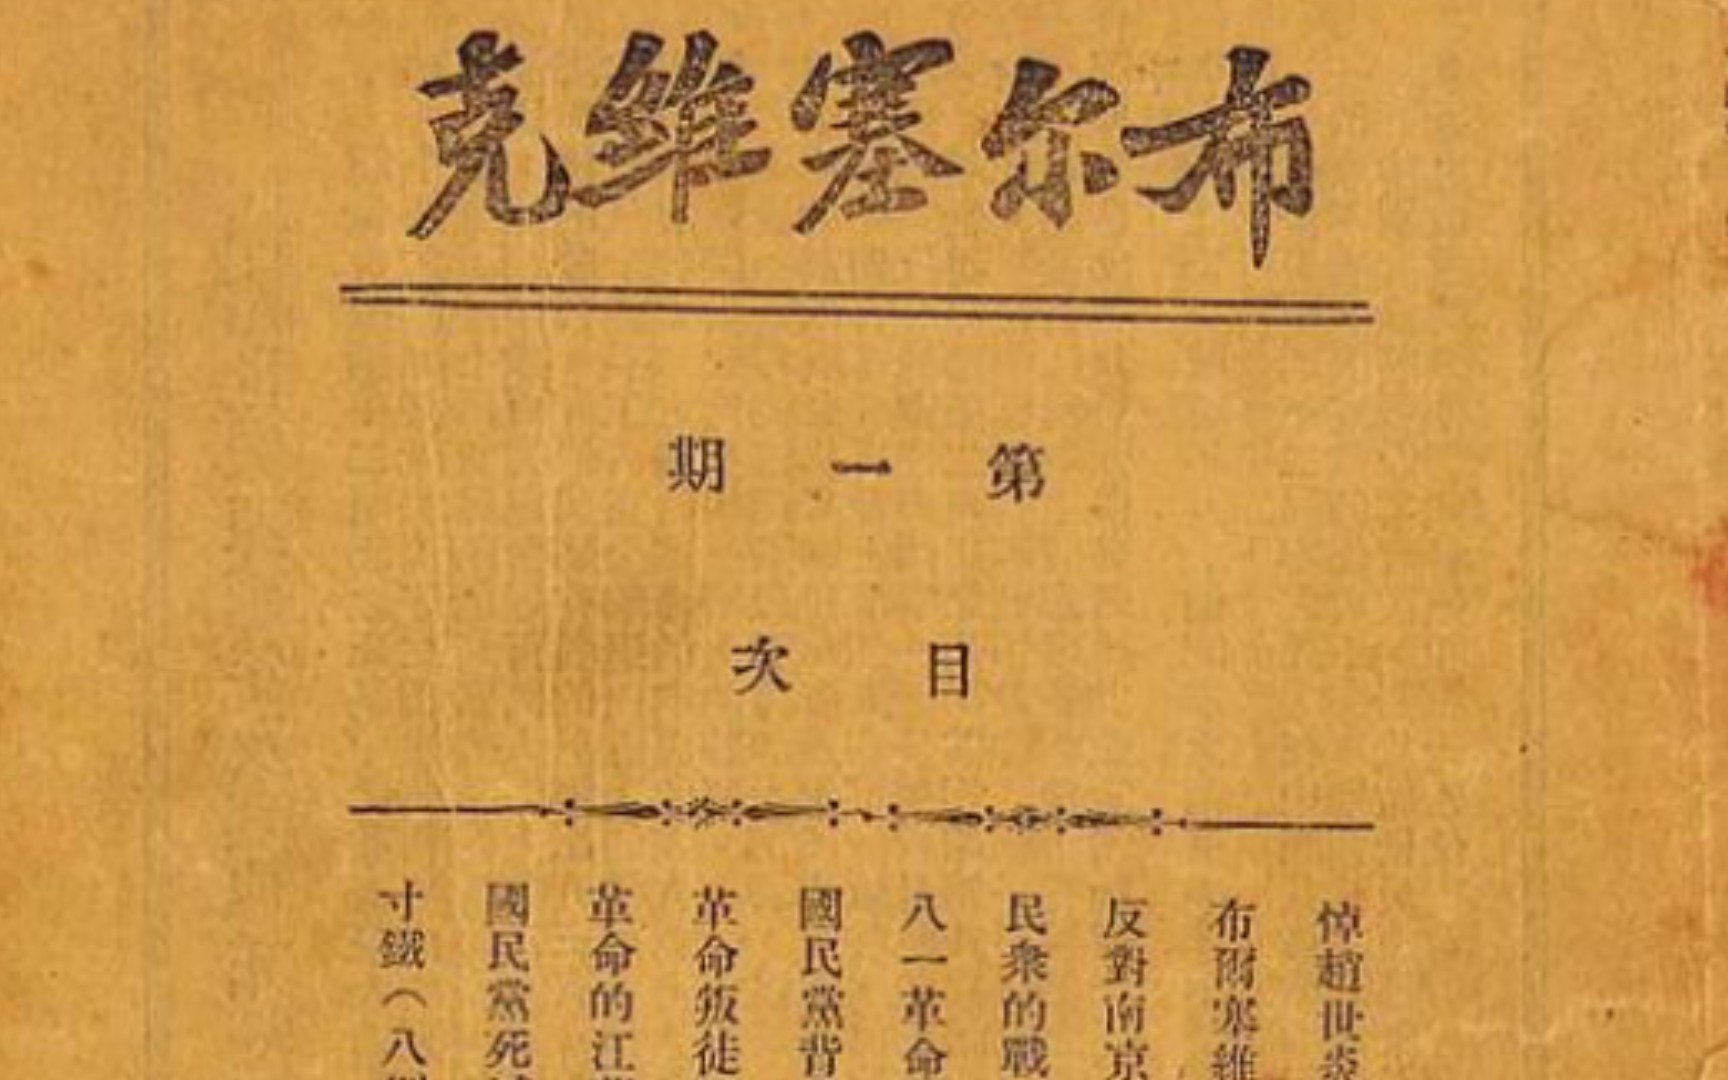 布尔塞維克
第一期
目次
悼趙世炎
布爾塞維
反對南京
民衆的戰
八一革命
國民黨背
革命叛徒
革命的江
國民黨死
寸鐵（八